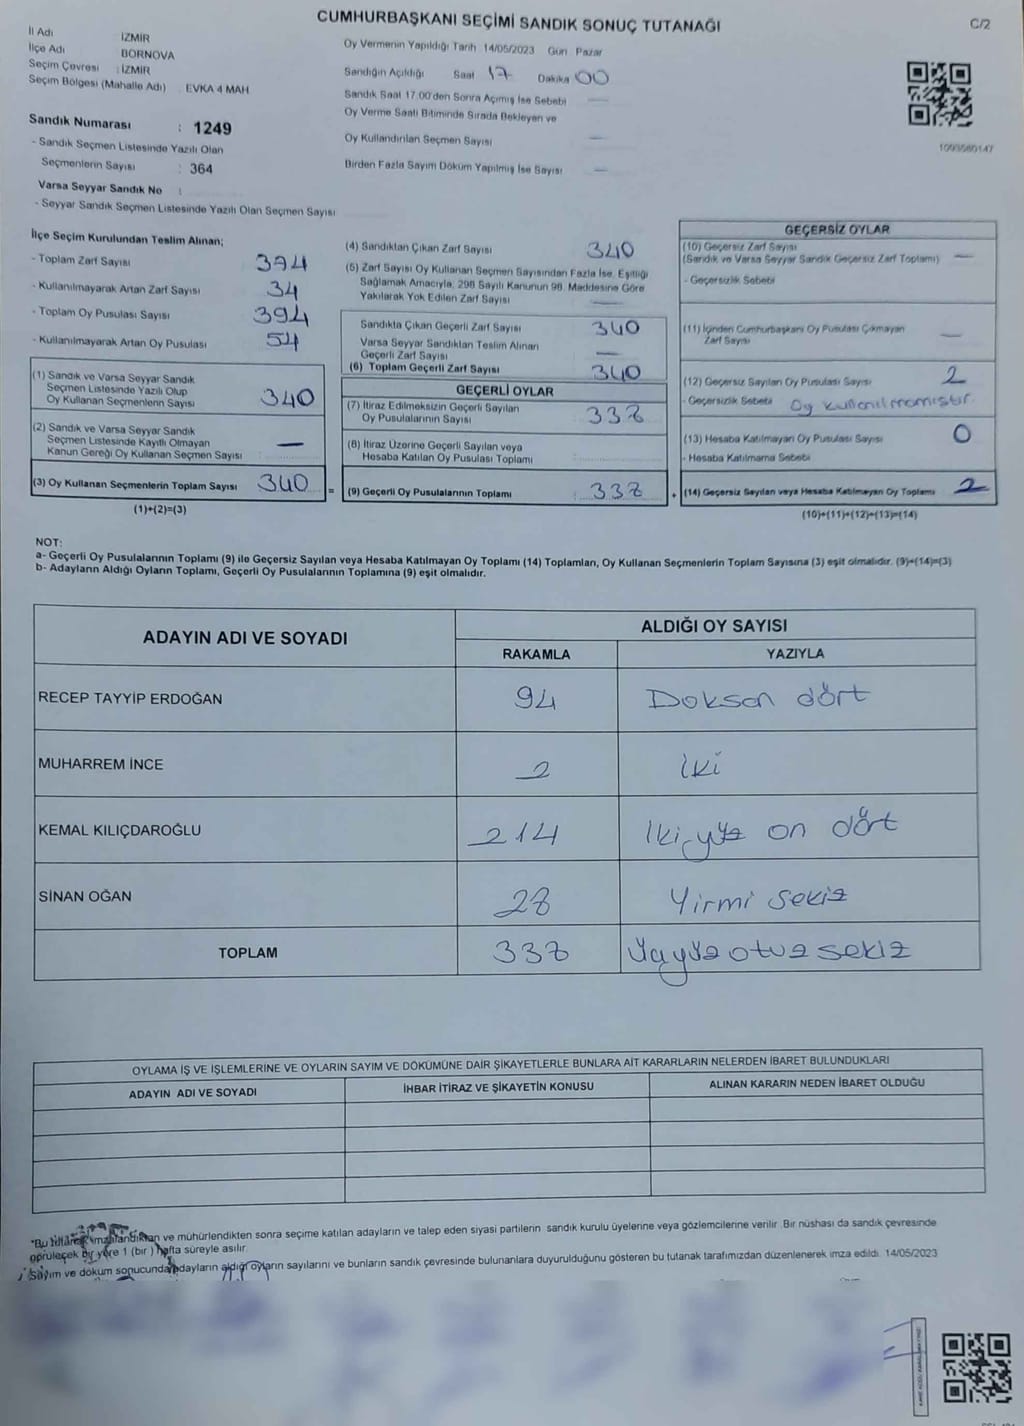 CUMHURBAŞKANI SEÇİMİ SANDIK SONUÇ TUTANAĞI
C/2
İl Adı : İZMİR
İlçe Adı : BORNOVA
Seçim Çevresi : İZMİR
Seçim Bölgesi (Mahalle Adı) : EVKA 4 MAH
Oy Vermenin Yapıldığı Tarih 14/05/2023 Gün Pazar
Sandığın Açıldığı Saat 17 Dakika 00
Sandık Saat 17:00'den Sonra Açılmış İse Sebebi —
Oy Verme Saati Bitiminde Sırada Bekleyen ve
Oy Kullandırılan Seçmen Sayısı —
Birden Fazla Sayım Döküm Yapılmış İse Sayısı —
1093580147
Sandık Numarası : 1249
- Sandık Seçmen Listesinde Yazılı Olan
Seçmenlerin Sayısı : 364
Varsa Seyyar Sandık No :
- Seyyar Sandık Seçmen Listesinde Yazılı Olan Seçmen Sayısı
İlçe Seçim Kurulundan Teslim Alınan;
- Toplam Zarf Sayısı 394
- Kullanılmayarak Artan Zarf Sayısı 34
- Toplam Oy Pusulası Sayısı 394
- Kullanılmayarak Artan Oy Pusulası 54
(1) Sandık ve Varsa Seyyar Sandık
Seçmen Listesinde Yazılı Olup
Oy Kullanan Seçmenlerin Sayısı 340
(2) Sandık ve Varsa Seyyar Sandık
Seçmen Listesinde Kayıtlı Olmayan
Kanun Gereği Oy Kullanan Seçmen Sayısı : —
(3) Oy Kullanan Seçmenlerin Toplam Sayısı 340 =
(1)+(2)=(3)
(4) Sandıktan Çıkan Zarf Sayısı 340
(5) Zarf Sayısı Oy Kullanan Seçmen Sayısından Fazla İse, Eşitliği
Sağlamak Amacıyla, 298 Sayılı Kanunun 98. Maddesine Göre
Yakılarak Yok Edilen Zarf Sayısı —
Sandıkta Çıkan Geçerli Zarf Sayısı 340
Varsa Seyyar Sandıktan Teslim Alınan
Geçerli Zarf Sayısı —
(6) Toplam Geçerli Zarf Sayısı 340
GEÇERLİ OYLAR
(7) İtiraz Edilmeksizin Geçerli Sayılan
Oy Pusulalarının Sayısı 338
(8) İtiraz Üzerine Geçerli Sayılan veya
Hesaba Katılan Oy Pusulası Toplamı :
(9) Geçerli Oy Pusulalarının Toplamı : 338 +
GEÇERSİZ OYLAR
(10) Geçersiz Zarf Sayısı
(Sandık ve Varsa Seyyar Sandık Geçersiz Zarf Toplamı) —
- Geçersizlik Sebebi
(11) İçinden Cumhurbaşkanı Oy Pusulası Çıkmayan
Zarf Sayısı —
(12) Geçersiz Sayılan Oy Pusulası Sayısı 2
- Geçersizlik Sebebi Oy kullanılmamıştır.
(13) Hesaba Katılmayan Oy Pusulası Sayısı 0
- Hesaba Katılmama Sebebi
(14) Geçersiz Sayılan veya Hesaba Katılmayan Oy Toplamı 2
(10)+(11)+(12)+(13)=(14)
NOT:
a- Geçerli Oy Pusulalarının Toplamı (9) ile Geçersiz Sayılan veya Hesaba Katılmayan Oy Toplamı (14) Toplamları, Oy Kullanan Seçmenlerin Toplam Sayısına (3) eşit olmalıdır. (9)+(14)=(3)
b- Adayların Aldığı Oyların Toplamı, Geçerli Oy Pusulalarının Toplamına (9) eşit olmalıdır.
ADAYIN ADI VE SOYADI
ALDIĞI OY SAYISI
RAKAMLA YAZIYLA
RECEP TAYYİP ERDOĞAN 94 Doksan dört
MUHARREM İNCE 2 İki
KEMAL KILIÇDAROĞLU 214 İkiyüz on dört
SİNAN OĞAN 28 Yirmi sekiz
TOPLAM 338 Üçyüz otuz sekiz
OYLAMA İŞ VE İŞLEMLERİNE VE OYLARIN SAYIM VE DÖKÜMÜNE DAİR ŞİKAYETLERLE BUNLARA AİT KARARLARIN NELERDEN İBARET BULUNDUKLARI
ADAYIN ADI VE SOYADI İHBAR İTİRAZ VE ŞİKAYETİN KONUSU ALINAN KARARIN NEDEN İBARET OLDUĞU
*Bu tutanak imzalandıktan ve mühürlendikten sonra seçime katılan adayların ve talep eden siyasi partilerin sandık kurulu üyelerine veya gözlemcilerine verilir. Bir nüshası da sandık çevresinde
görülecek bir yere 1 (bir) hafta süreyle asılır.
Sayım ve döküm sonucunda adayların aldığı oyların sayılarını ve bunların sandık çevresinde bulunanlara duyurulduğunu gösteren bu tutanak tarafımızdan düzenlenerek imza edildi. 14/05/2023